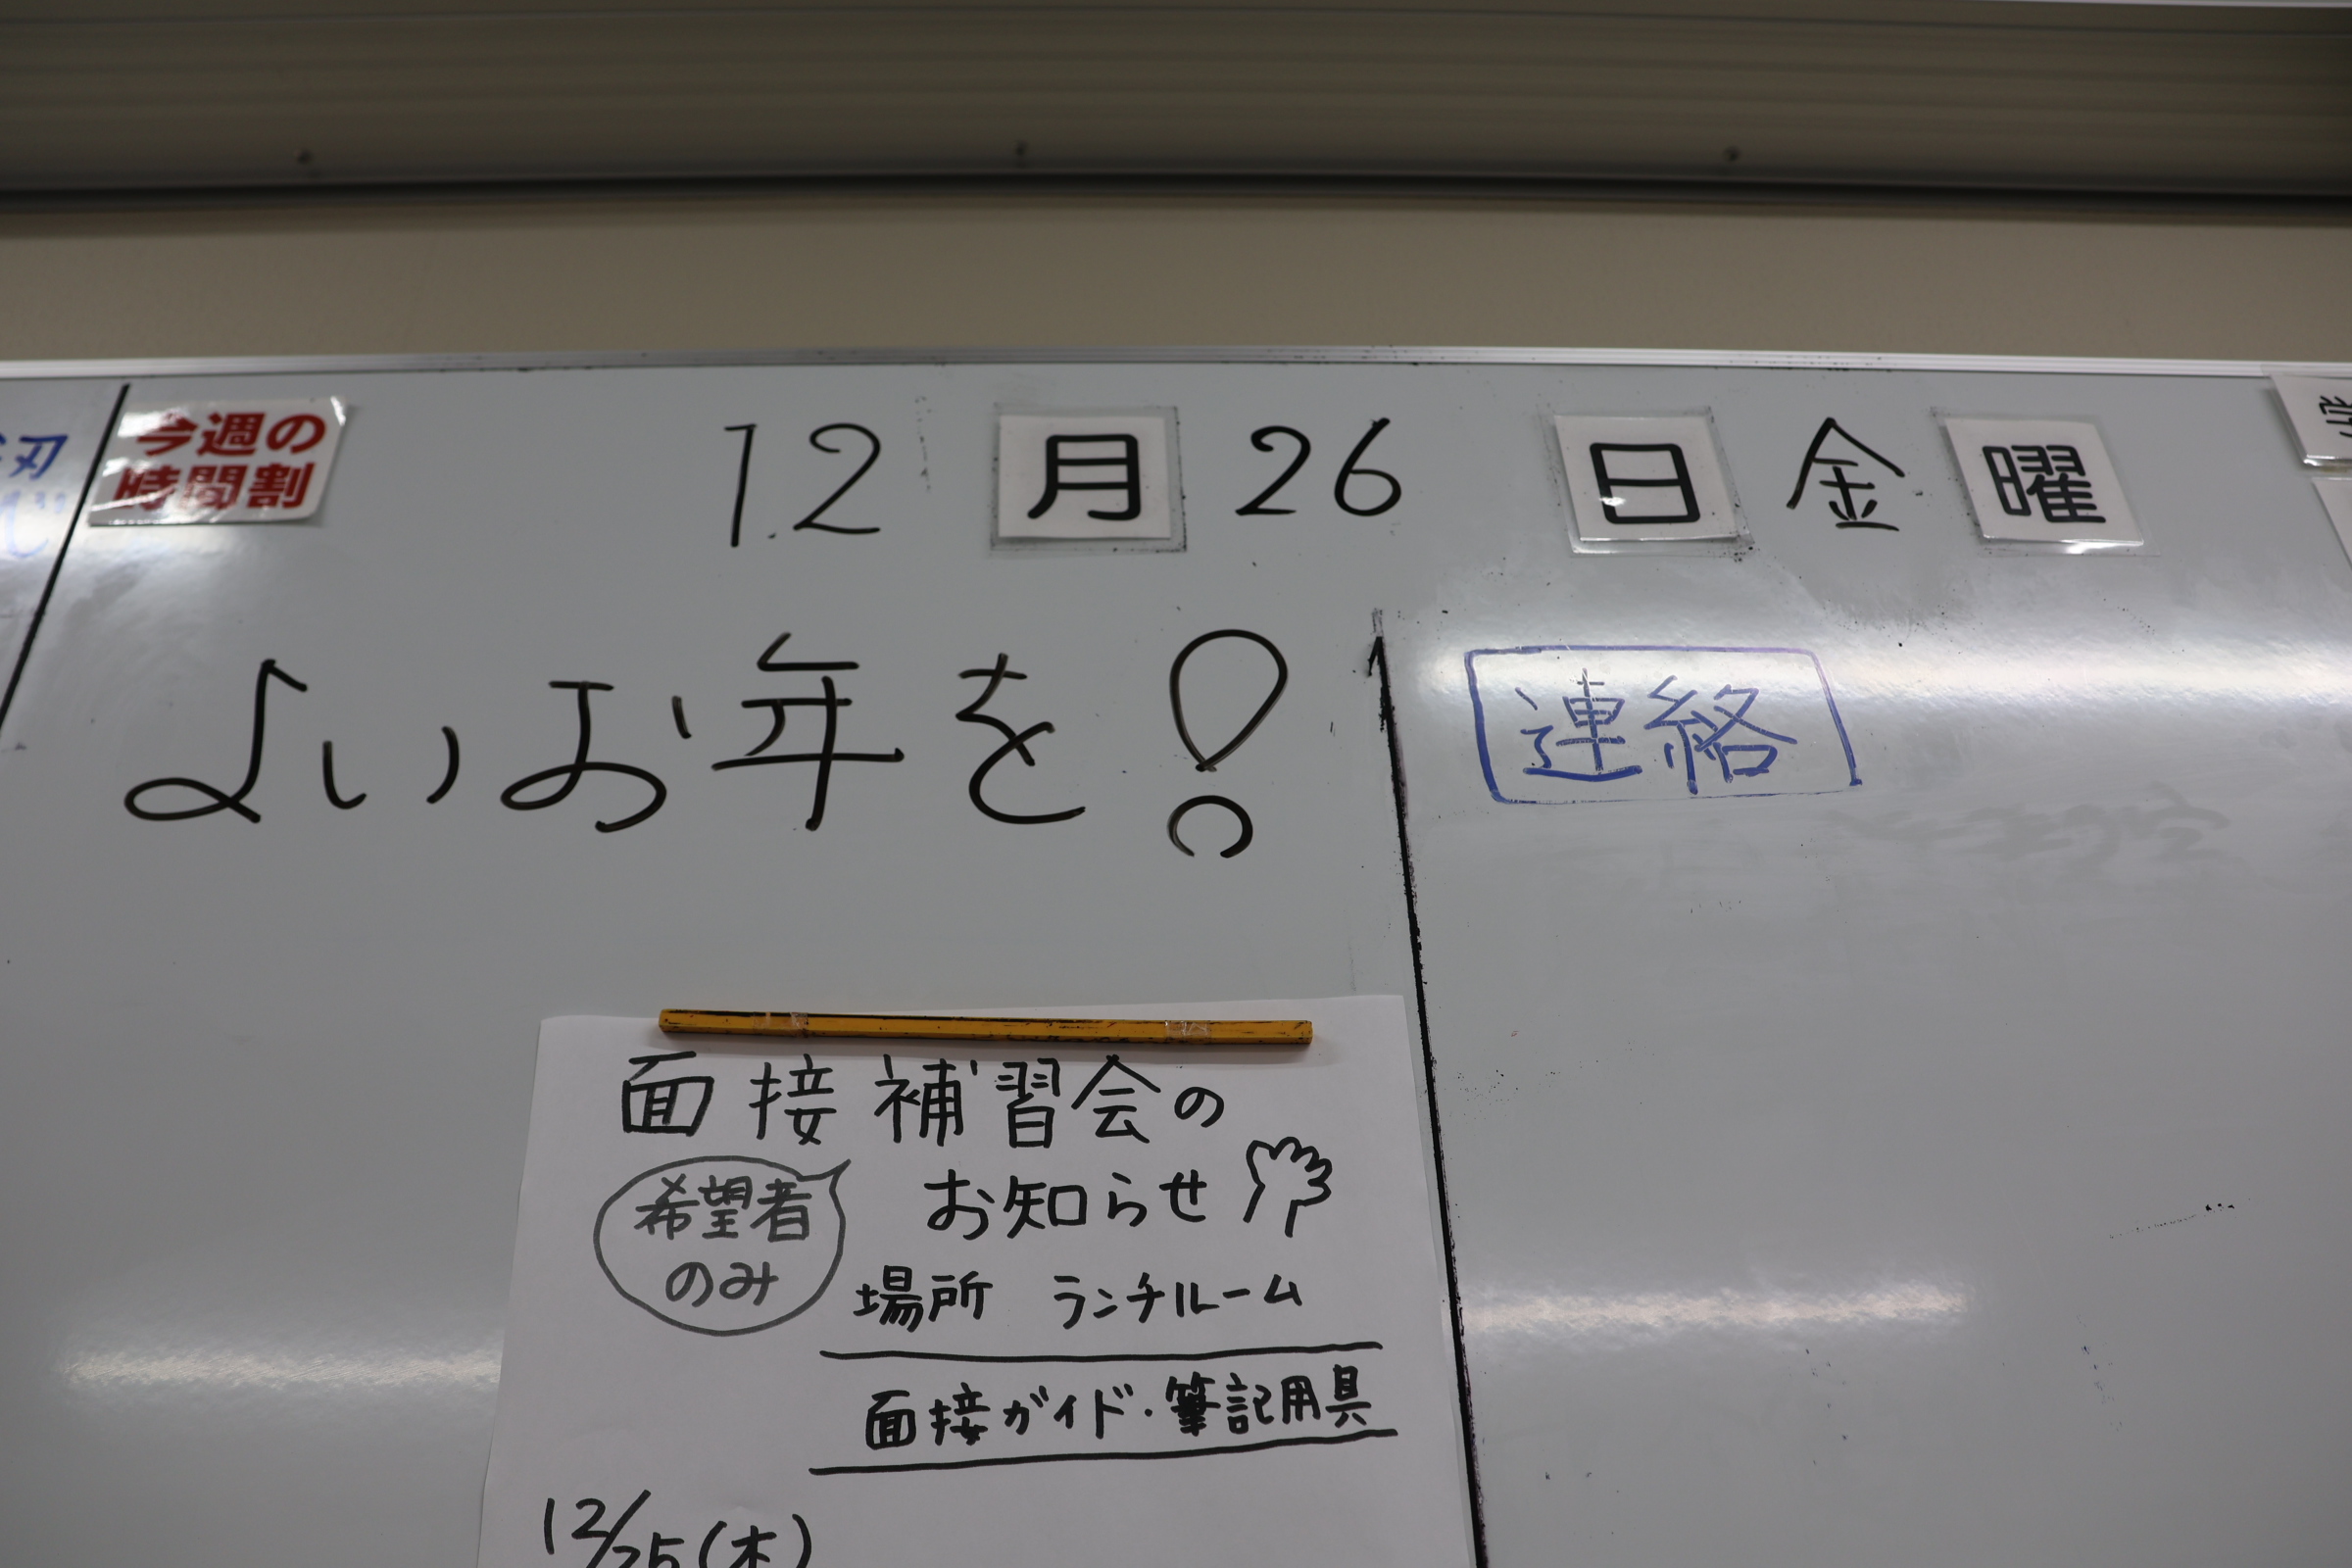 今週の
時間割
12月26日金曜
よいお年を!
連絡
面接補習会の
お知らせ
希望者
のみ
場所 ランチルーム
面接ガイド・筆記用具
12/25(木)